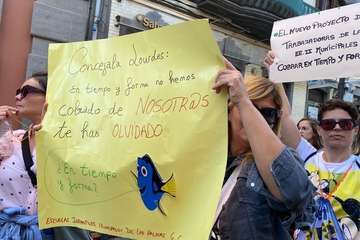 Concejala Lourdes:
En tiempo y forma no hemos
cobrado de NOSOTR@S
te has OLVIDADO.
¿En tiempo
y forma?
ESCUELAS INFANTILES MUNICIPALES DE LAS PALMAS G.C
#EL NUEVO PROYECTO D
TRABAJADORAS DE LA
EE.II MUNICIPALES
COBRAR EN TIEMPO Y FOR